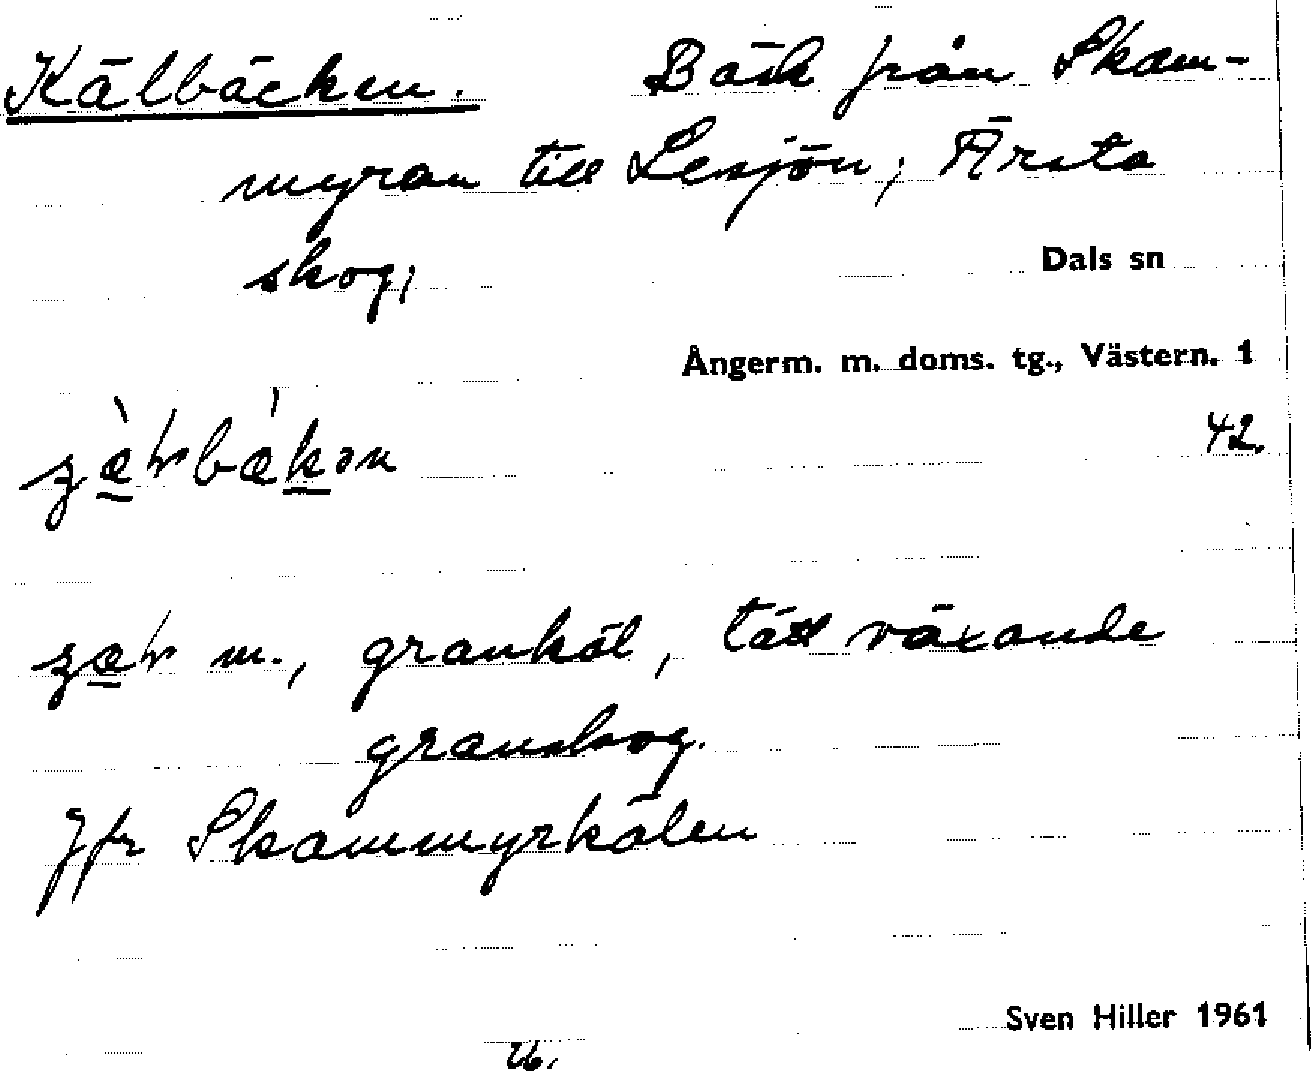 Kälbäcken. Bäck från Skam-
myran till Lesjön, Ärsta
skog,
Dals sn
Ångerm. m. doms. tg., Västern. 1
42.
m., grankäl, tätt växande
granskog.
Jfr Skammyrkälen
Sven Hiller 1961